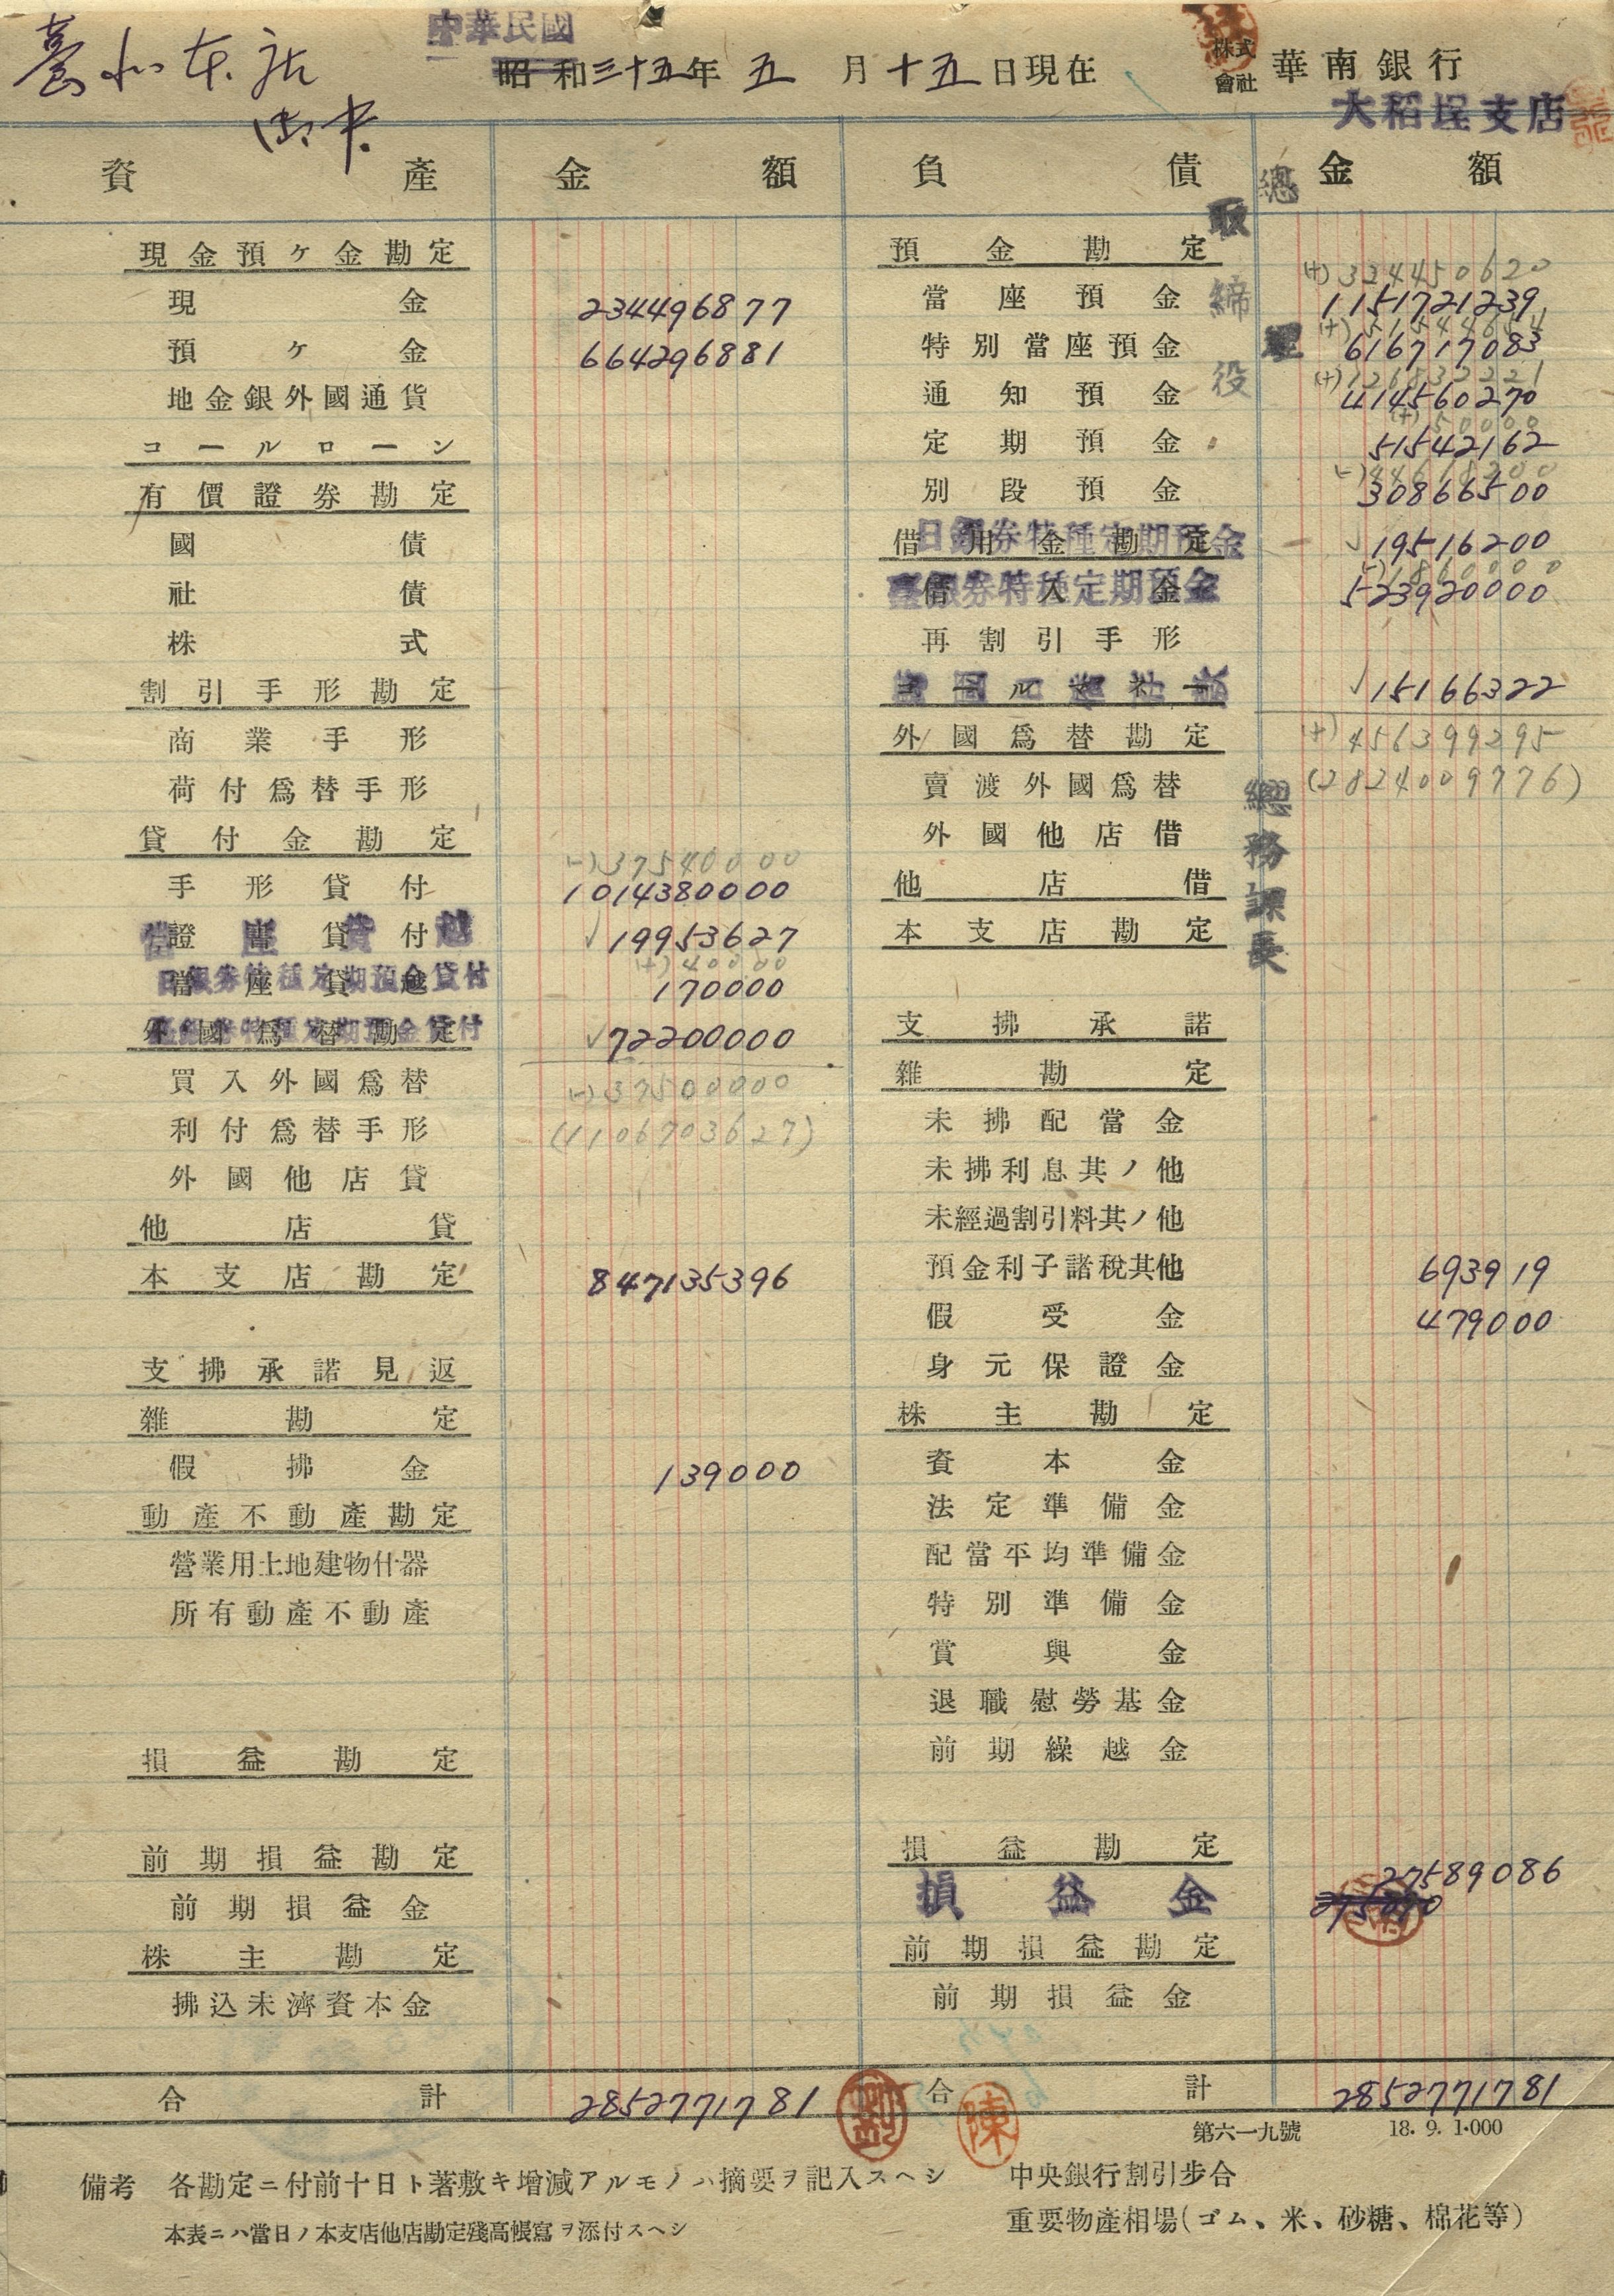 臺北本店
御中
中華民國
昭和三十五年 五 月 十五 日現在
株式會社 華南銀行
大稻埕支店
資產 金額 負債 金額
總經理
取締役
總務課長
現金預ヶ金勘定
現金 234496877
預ヶ金 664296881
地金銀外國通貨
コールローン
有價證券勘定
國債
社債
株式
割引手形勘定
商業手形
荷付爲替手形
貸付金勘定
(-)37540000
手形貸付 1014380000
證書貸付 ✓19953627
(+)40000
當座貸越 170000
日銀券特種定期預金貸付
外國爲替勘定 ✓72200000
臺銀券特種定期預金貸付
買入外國爲替 (-)37500000
利付爲替手形 (1106703627)
外國他店貸
他店貸
本支店勘定 847135396
支拂承諾見返
雜勘定
假拂金 139000
動產不動產勘定
營業用土地建物什器
所有動產不動產
損益勘定
前期損益勘定
前期損益金
株主勘定
拂込未濟資本金
合計 2852771781
預金勘定
(+)324450620
當座預金 1151721239
(+)51544654
特別當座預金 616717083
(+)126832221
通知預金 414560270
(+)50000
定期預金 51542162
(-)44618200
別段預金 30866500
借用金勘定 ✓19516200
日銀券特種定期預金
(-)1860000
借入金 523920000
臺銀券特種定期預金
再割引手形
コールマネー ✓15166322
外國爲替勘定 (+)456399295
賣渡外國爲替 (2824009776)
外國他店借
他店借
本支店勘定
支拂承諾
雜勘定
未拂配當金
未拂利息其ノ他
未經過割引料其ノ他
預金利子諸稅其他 693919
假受金 479000
身元保證金
株主勘定
資本金
法定準備金
配當平均準備金
特別準備金
賞與金
退職慰勞基金
前期繰越金
損益勘定
損益金 27589086
前期損益勘定
前期損益金
劉
陳
合計 2852771781
第六一九號 18. 9. 1.000
備考 各勘定ニ付前十日ト著敷キ增減アルモノハ摘要ヲ記入スヘシ
本表ニハ當日ノ本支店他店勘定殘高帳寫ヲ添付スヘシ
中央銀行割引步合
重要物產相場(ゴム、米、砂糖、棉花等)